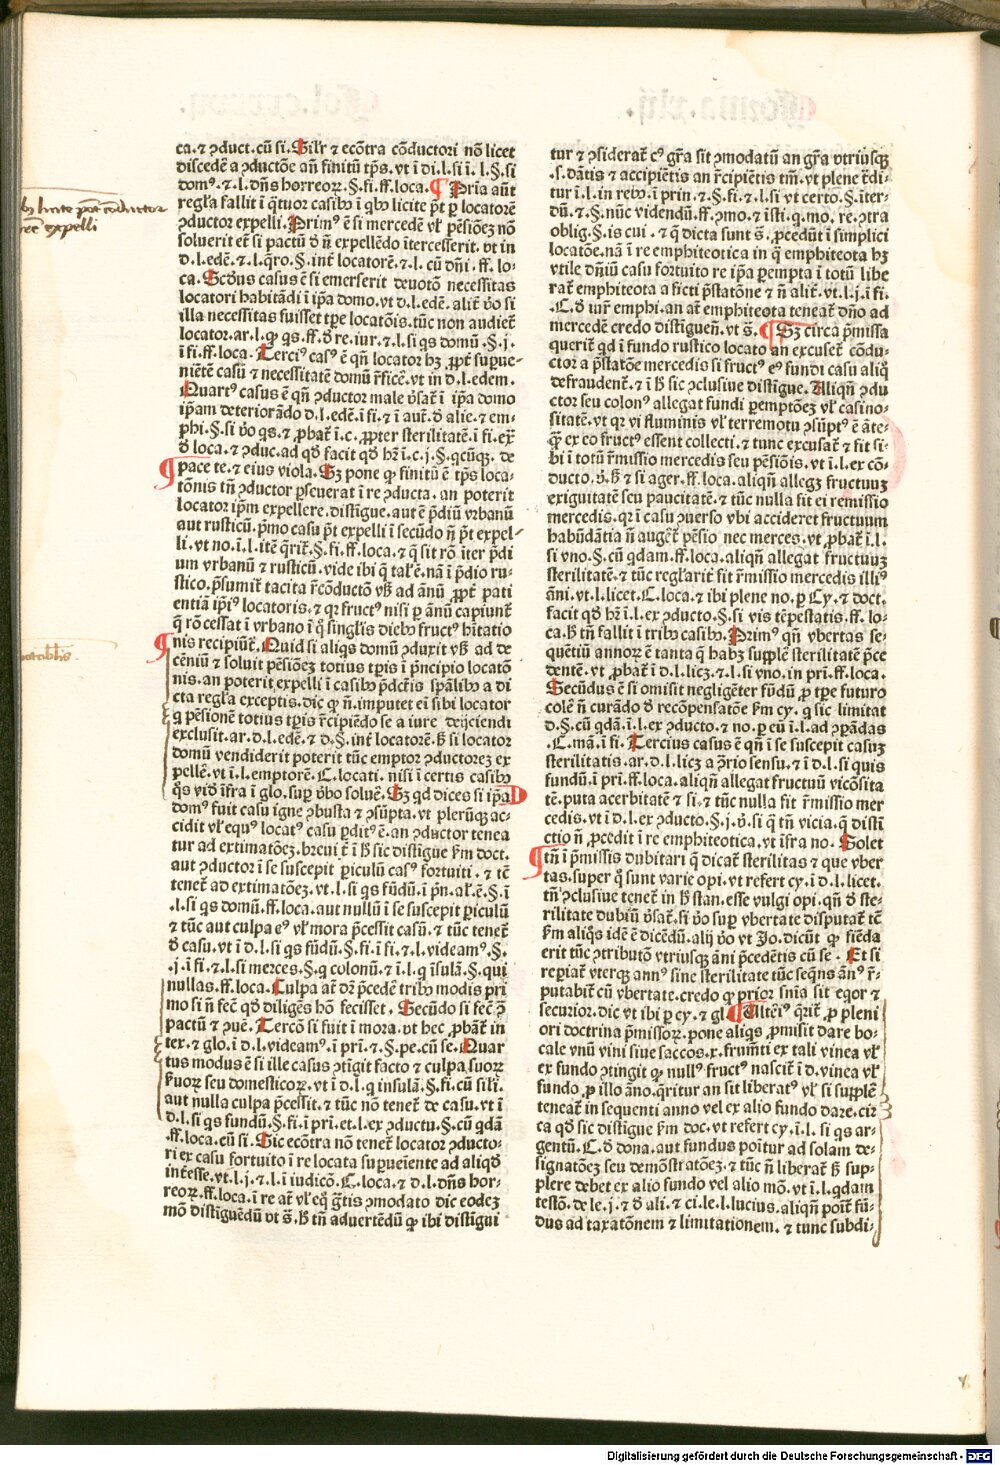 ca. ⁊ ꝯduct. cū si. Silr̄ ⁊ ecōtra cōductori nō licet
discedē a ꝯductōe an̄ finitū tp̄s. vt i di. l. si i. l. §. si
domꝰ. ⁊. l. dn̄s horreoꝝ. §. fi. ff. loca. ¶ Pria aūt
regła fallit i q̄tuor casibꝰ i qbꝰ licite p̄t ꝑ locatorē
ꝯductor expelli. Primꝰ ē si mercedē vł pēsiōeꝫ nō
soluerit et̄ si pactū ꝺ n̄ expellēdo ītercesserit. vt in
d. l. edē. ⁊. l. q̄ro. §. int̄ locatorē. ⁊. l. cū dn̄i. ff. lo-
ca. Scd̄us casus ē si emerserit deuotō necessitas
locatori habitādi i ip̄a domo. vt d. l. edē. alit̄ ꝟo si
illa necessitas fuisset tp̄e locatōis. tūc non audiet̄
locator. ar. l. ꝙ qs. ff. ꝺ re. iur. ⁊. l. si qs domū. §. j.
i fi. ff. loca. Terciꝰ casꝰ ē qn̄ locator hꝫ ꝓpt̄ supue-
niētē casū ⁊ necessitatē domū r̄ficē. vt in d. l. edem.
Quartꝰ casus ē qn̄ ꝯductor male v̄sat̄ i ip̄a domo
ip̄am deteriorādo d. l. edē. i fi. ⁊ i aut̄. ꝺ alie. ⁊ em-
phi. §. si ꝟo qs. ⁊ ꝓbat̄ i. c. ꝓpter sterilitatē. i fi. ex̄
ꝺ loca. ⁊ ꝯduc. ad qd̄ facit qd̄ hr̄ i. c. j. §. qcūqꝫ. de
pace te. ⁊ eius viola. Sꝫ pone ꝙ finitū ē tp̄s loca-
tōnis tn̄ ꝯductor ꝑseuerat i re ꝯducta. an poterit
locator ip̄m expellere. distīgue. aut ē p̄diū vrbanū
aut rusticū. p̄mo casu p̄t expelli i secūdo n̄ p̄t expel-
li. vt no. i. l. itē q̄rit̄. §. fi. ff. loca. ⁊ q̄ sit rō īter p̄di
um vrbanū ⁊ rusticū. vide ibi q̄ tal'ē. nā i p̄dio ru-
stico. p̄sumit̄ tacita r̄cōductō vsꝫ ad ānū ꝓpt̄ pati
entiā ip̄iꝰ locatoris. ⁊ qr fructꝰ nisi ꝑ ānū capiunt̄
q̄ rō cessat i vrbano i q̄ singlis diebꝰ fructꝰ hītatio
nis recipiūt̄. Quid si aliqs domū ꝯduxit vsꝫ ad de
cēniū ⁊ soluit pēsiōeꝫ totius tp̄is i p̄ncipio locatō
nis. an poterit expelli i casibꝰ p̄dctis sp̄alibꝰ a di
cta regła exceptis. dic ꝙ n̄. imputet ei sibi locator
q pēsionē totius tp̄is r̄cipiēdo se a iure deijciendi
exclusit. ar. d. l. edē. ⁊ d. §. int̄ locatorē. ꝫ si locator
domū vendiderit poterit tūc emptor ꝯductoreꝫ ex
pellē. vt i. l. emptorē. C. locati. nisi i certis casibꝰ
q̄s vid̄o īfra i glo. suꝑ ꝟbo soluē. Sꝫ qd dices si ip̄a
domꝰ fuit casu igne ꝯbusta ⁊ ꝯsūpta. vt plerūqꝫ ac-
cidit vł equꝰ locatꝰ casu ꝑditꝰ ē. an ꝯductor tenea
tur ad extimatōeꝫ. breuit̄ i hꝫ sic distīgue ẜm doct.
aut ꝯductor i se suscepit ꝑiculū casꝰ fortuiti. ⁊ tē
tenet̄ ad extimatōeꝫ. vt. l. si qs fūdū. i p̄n. al'. ē. §. i
. l. si qs domū. ff. loca. aut nullū i se suscepit ꝑiculū
⁊ tūc aut culpa eꝰ vł mora p̄cessit casū. ⁊ tūc tenet̄
ꝺ casu. vt i d. l. si qs fūdū. §. fi. i fi. ⁊. l. videamꝰ. §.
. j. i fi. ⁊. l. si merces. §. q colonū. ⁊ i. l. q īsulā. §. qui
nullas. ff. loca. Culpa at̄ dr̄ p̄cedē tribꝰ modis pri
mo si n̄ fec̄ qd̄ diligēs hō fecisset. Secūdo si fec̄ ꝯ̄
pactū ⁊ ꝯuē. Tercō si fuit i mora. vt hec ꝓbat̄ in
tex. ⁊ glo. i d. l. videamꝰ. i pri. ⁊. §. pe. cū se. Quar
tus modus ē si ille casus ꝯtigit facto ⁊ culpa suoꝝ
ẜuoꝝ seu domesticoꝝ. vt i d. l. q insulā. §. fi. cū sili.
aut nulla culpa p̄cessit. ⁊ tūc nō tenet̄ de casu. vt i
d. l. si qs fundū. §. fi. i pri. et. l. ex ꝯductu. §. cū qdā
. ff. loca. cū si. Sic ecōtra nō tenet̄ locator ꝯducto-
ri ex casu fortuito i re locata supueiente ad aliqd̄
interesse. vt. l. j. ⁊. l. i iudicō. C. loca. ⁊ d. l. dn̄s hor-
reoꝝ. ff. loca. i re at̄ vł eq̄ gr̄tis ꝯmodato dic eodeꝫ
mō distīguēdū vt s̄. hꝫ tn̄ aduertēdū ꝙ ibi distīgui
tur ⁊ ꝯsiderat̄ cꝰ gr̄a sit ꝯmodatū an gr̄a vtriusqꝫ
. s. dātis ⁊ accipiētis an r̄cipiētis tm̄. vt plene r̄di-
tur i. l. in rebꝰ. i prin. ⁊. §. fi. ⁊. l. si vt certo. §. iter-
dū. ⁊. §. nūc videndū. ff. ꝯmo. ⁊ i sti. q. mo. re. ꝯtra
oblig. §. is cui. ⁊ q̄ dicta sunt s̄. ꝓcedūt i simplici
locatōe. nā i re emphiteotica in q̄ emphiteota hꝫ
vtile dn̄iū casu fortuito re ip̄a ꝑempta i totū libe
rat̄ emphiteota a ficti p̄statōne ⁊ n̄ alit̄. vt. l. j. i fi.
. C. ꝺ iur̄ emphi. an at̄ emphiteota teneat̄ dn̄o ad
mercedē credo distīguen̄. vt s̄. ¶ Sꝫ circa p̄missa
querit̄ qd i fundo rustico locato an excuset̄ cōdu-
ctor a p̄statōne mercedis si fructꝰ eꝰ fundi casu aliq̄
defraudent̄. ⁊ i hꝫ sic ꝯclusiue distīgue. Aliqn̄ ꝯdu
ctor seu colonꝰ allegat fundi ꝑemptōeꝫ vł casino-
sitatē. vt qr vi fluminis vł terremotu ꝯsūptꝰ ē āte-
q̄ꝫ ex eo fructꝰ essent collecti. ⁊ tunc excusat̄ ⁊ fit si-
bi i totū r̄missio mercedis seu pēsiōis. vt i. l. ex cō-
ducto. ꝟ. hꝫ ⁊ si ager. ff. loca. aliqn̄ allegꝫ fructuuꝫ
exiguitatē seu paucitatē. ⁊ tūc nulla fit ei remissio
mercedis. qr i casu ꝯuerso vbi accideret fructuum
habūdātia n̄ auget̄ pēsio nec merces. vt ꝓbat̄ i. l.
si vno. §. cū qdam. ff. loca. aliqn̄ allegat fructuuꝫ
sterilitatē. ⁊ tūc regłarit̄ fit r̄missio mercedis illiꝰ
āni. vt. l. licet. C. loca. ⁊ ibi plene no. ꝑ Cy. ⁊ doct.
facit qd̄ hr̄ i. l. ex ꝯducto. §. si vis tēpestatis. ff. lo-
ca. hꝫ tn̄ fallit i tribꝰ casibꝰ. Primꝰ qn̄ vbertas se-
quētiū annoꝝ ē tanta q̄ habꝫ supplē sterilitatē p̄ce
dentē. vt ꝓbat̄ i d. l. licꝫ. ⁊. l. si vno. in pri. ff. loca.
Secūdus ē si omisit negligēter fūdū ꝓ tp̄e futuro
colē n̄ curādo ꝺ recōpensatōe ẜm cy. q sic limitat
d. §. cū qdā. i. l. ex ꝯducto. ⁊ no. ꝑ eū i. l. ad ꝯparādas
. C. mā. i fi. Tercius casus ē qn̄ i se suscepit casuꝫ
sterilitatis. ar. d. l. licꝫ a ꝯ̄rio sensu. ⁊ i d. l. si quis
fundū. i pri. ff. loca. aliqn̄ allegat fructuū vicōsita
tē. puta acerbitatē ⁊ si. ⁊ tūc nulla fit r̄missio mer
cedis. vt i d. l. ex ꝯducto. §. j. ꝟ. si q̄ tn̄ vicia. q̄ disti
ctio n̄ ꝓcedit i re emphiteotica. vt īfra no. Solet
tn̄ i p̄missis dubitari q̄ dicat̄ sterilitas ⁊ que vber
tas. super q̄ sunt varie opi. vt refert cy. i d. l. licet.
tn̄ ꝯclusiue tenet̄ in hꝫ stan. esse vulgi opi. qn̄ ꝺ ste-
rilitate dubiū v̄sat̄. si ꝟo suꝑ vbertate disputat̄ tē
ẜm aliqs idē ē dicēdū. alij ꝟo vt Jo. dicūt ꝙ fiēda
erit tūc ꝯtributō vtriusqꝫ āni p̄cedētis cū se. Et si
repiat̄ vterqꝫ annꝰ sine sterilitate tūc seqn̄s ānꝰ r̄-
putabit̄ cū vbertate. credo ꝙ prior sn̄ia sit eqor ⁊
securior. dic vt ibi ꝑ cy. ⁊ gl. ¶ Ult̄iꝰ q̄rit̄. ꝓ pleni
ori doctrina p̄missoꝝ. pone aliqs ꝓmisit dare bo-
cale vnū vini siue saccos. x. frum̄ti ex tali vinea vł
ex fundo ꝯtingit ꝙ nullꝰ fructꝰ nascit̄ i d. vinea vł
fundo ꝓ illo āno. q̄ritur an sit liberatꝰ vł si supplē
teneat̄ in sequenti anno vel ex alio fundo dare. cir
ca qd̄ sic distīgue ẜm doc. vt refert cy. i. l. si qs ar-
gentū. C. ꝺ dona. aut fundus poītur ad solam de-
signatōeꝫ seu demōstratōeꝫ. ⁊ tūc n̄ liberat̄ hꝫ sup-
plere debet ex alio fundo vel alio mō. vt i. l. qdam
testō. de le. j. ⁊ ꝺ ali. ⁊ ci. le. l. lucius. aliqn̄ poīt̄ fū-
dus ad taxatōnem ⁊ limitationem. ⁊ tunc subdi-
Digitalisierung gefördert durch die Deutsche Forschungsgemeinschaft - DFG